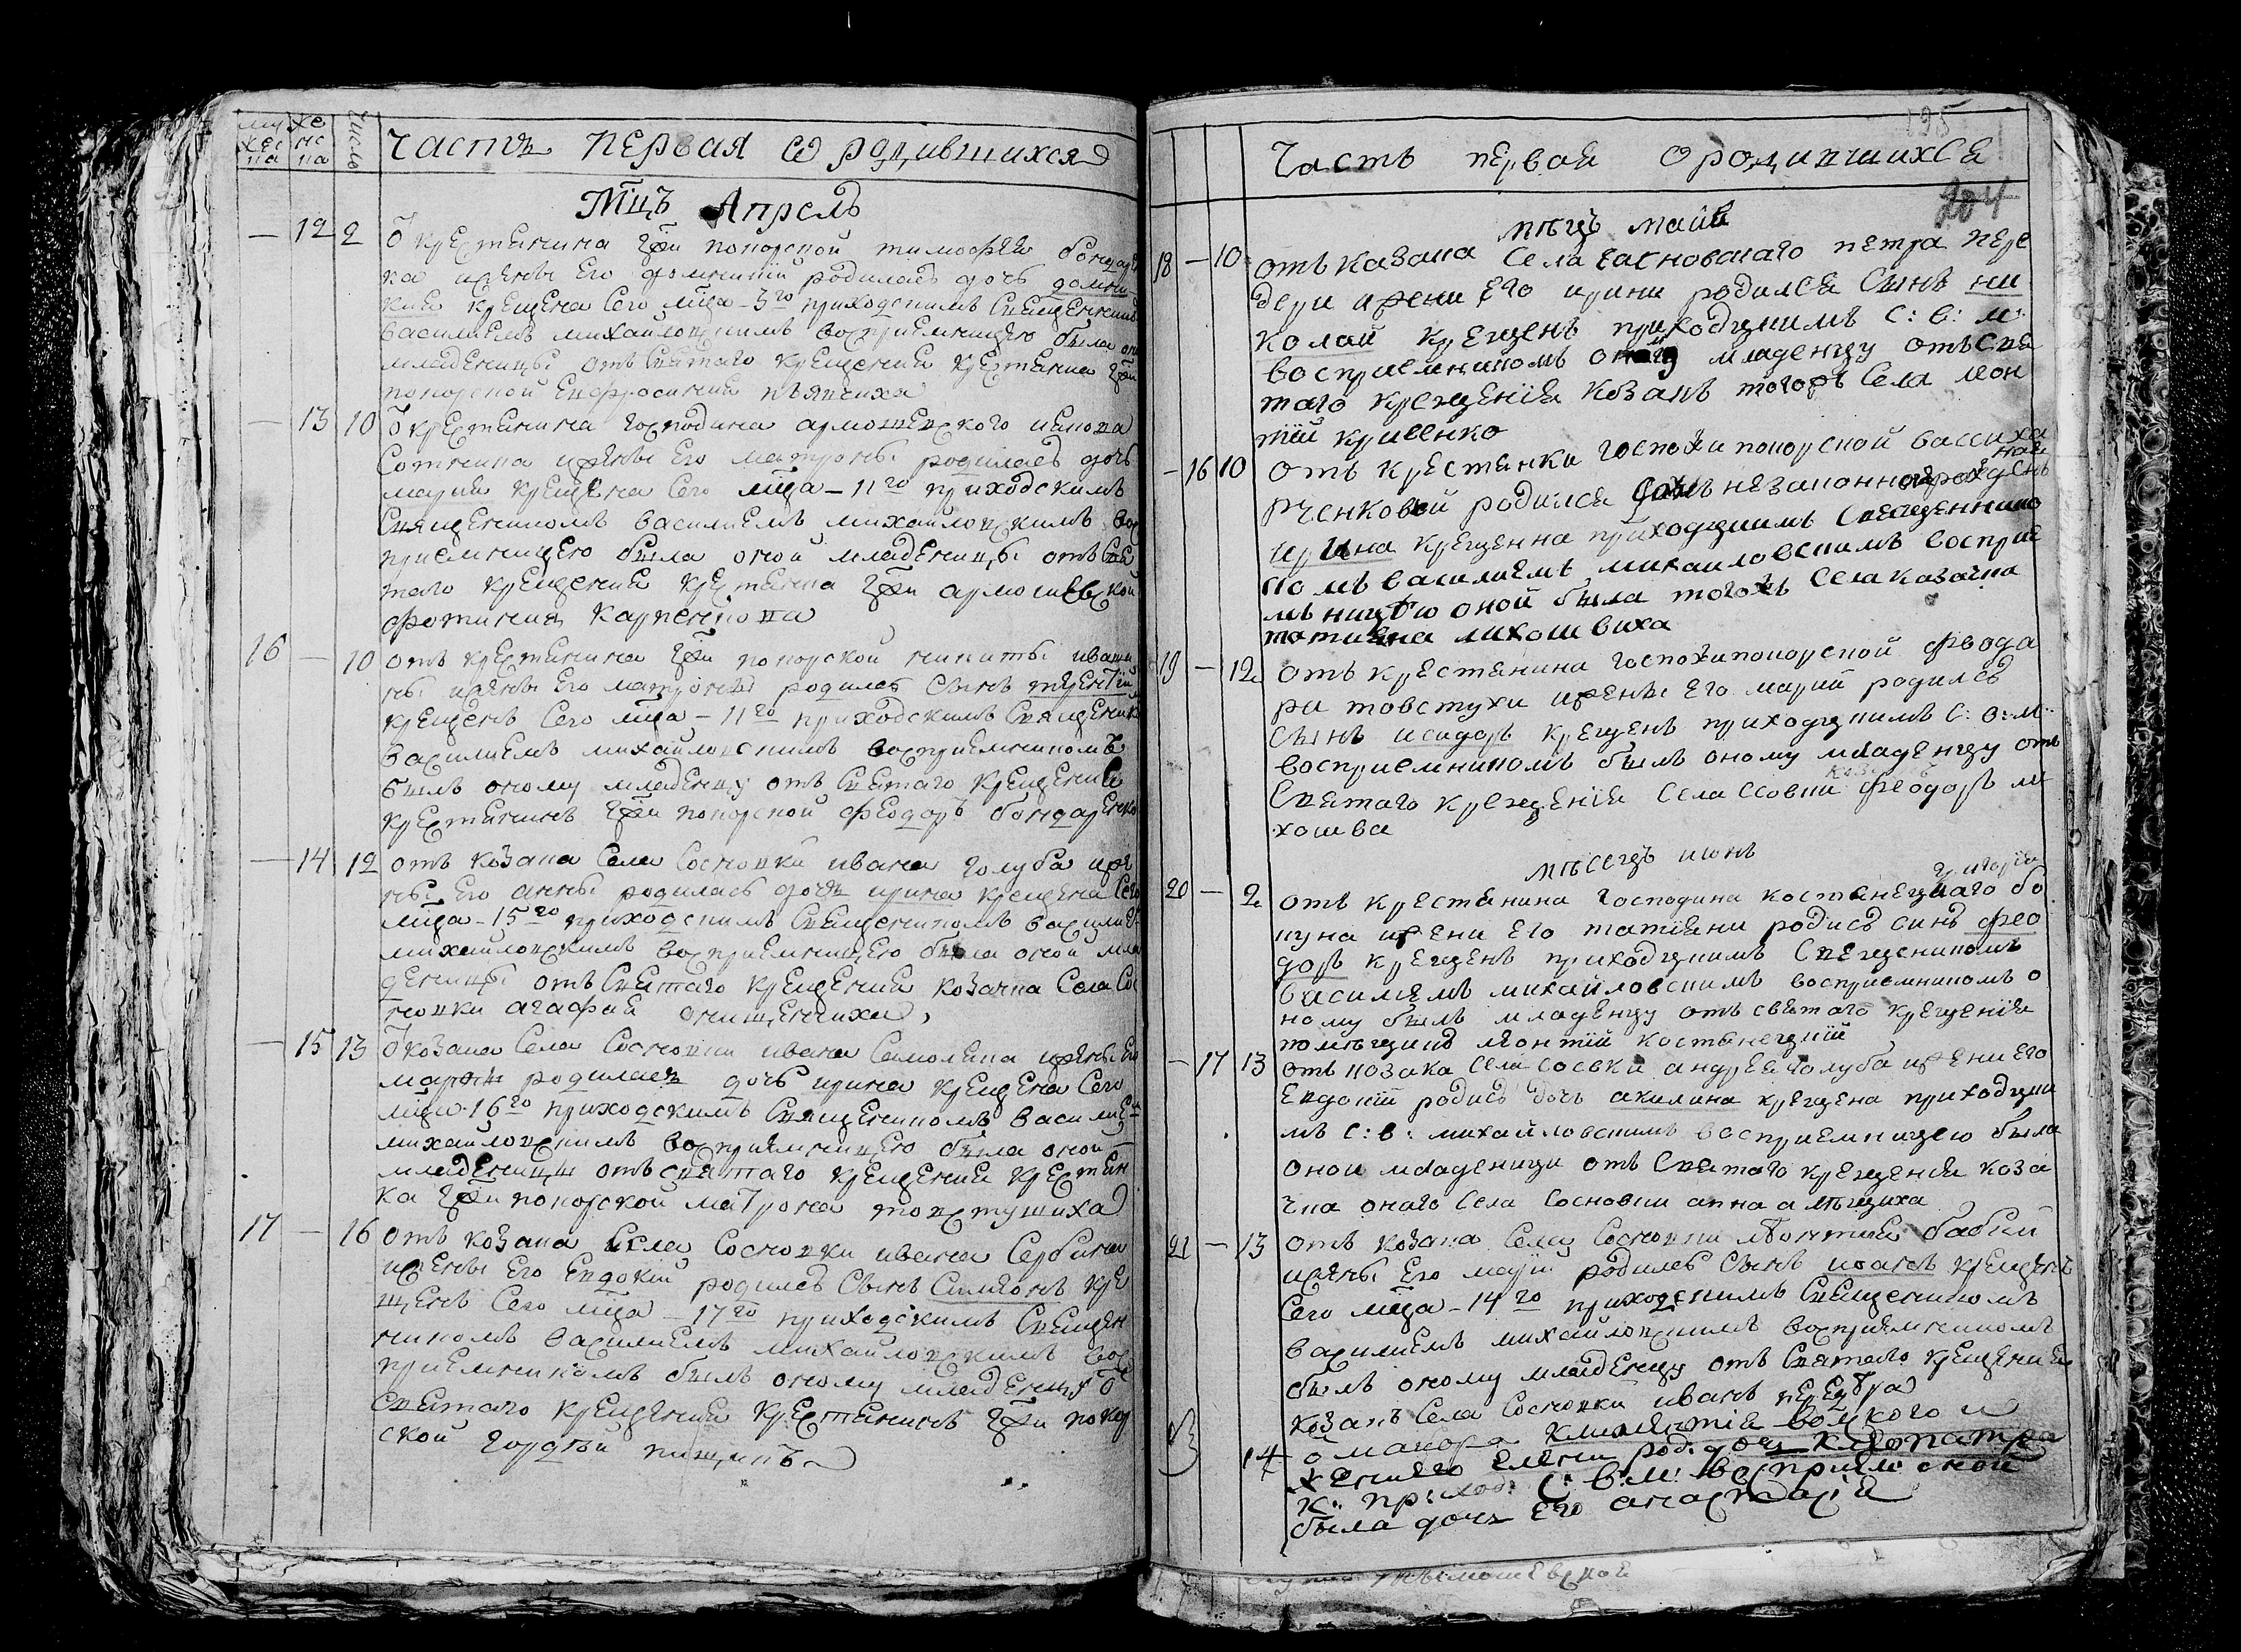 муже женс число
кес
па на
Часть первая ѡ родившихся
Мцъ Апрель
— 12 2 Ѿ крестянина гжи покорской тимофея бондаре
ка и жены его домникіи родилась дочь домни
кия крещена сего мца - 3го приходскимъ священником
василиемъ михайловскимъ восприемницею была оно
младеницы отъ святаго крещения крестянка гжи
покорской евфросиния
— 13 10 Ѿ крестянина господина армашевского
сотника и жены его матроны родилась дочь
мария крещена сего мца - 11го приходскимъ
священникомъ василиемъ михайловскимъ вос
приемницею была оной младеницы отъ свя
таго крещения крестянка гжи армашевской
фотиния карпенкова
16 — 10 отъ крестянина гжи покорской никиты иваш
ны и жены его матроны родился сынъ терентій
крещенъ сего мца - 11го приходскимъ священнико
василиемъ михайловскимъ восприемникомъ
былъ оному младенцу отъ святаго крещения
крестянинъ гжи покорской феодоръ бондаренко
— 14 12 отъ козака села сосновки ивана голуба и же
ны его анны родилась дочь ирина крещена сего
мца - 15го приходскимъ священникомъ василие
михайловскимъ восприемницею была оной мла
деницы отъ святаго крещения козачка села сос
новки агафия онищенчиха
— 15 13 Ѿ козака села сосновки ивана самолина и жены его
марфы родилась дочь ирина крещена сего
мца 16го приходскимъ священникомъ василием
михайловскимъ восприемницею была оной
младеницы отъ святаго крещения крестян
ка гжи покорской матрона товстушиха
17 — 16 отъ козака села сосновки ивана сербина
и жены его евдокіи родился сынъ симеонъ кре
щенъ сего мца - 17го приходскимъ священ
никомъ василиемъ михайловскимъ вос
приемникомъ былъ оному младенцу ѿ
святаго крещения крестянинъ гжи покор
ской гордѣй
195
Часть первая о родившихся
204
мѣсцъ маий
18 — 10 отъ казака села сасновскаго петра пере
дери и жени его ирини родился сынъ ни
колай крещенъ приходскимъ с: в: м:
восприемникомъ оному младенцу отъ свя
таго крещенія козакъ тогожъ села леон
тій кривенко
— 16 10 отъ крестянки госпожи покорской васси
рченковой родился незаконно рожденъ
ирина крещенна приходскимъ священнико
комъ василиемъ михаиловскимъ восприе
мницею оной была тогожъ села козачка
татияна михошвиха
19 — 12 отъ крестянина госпожи покорской феодо
ра товстухи и жены его марий родился
сынъ исидоръ крещенъ приходскимъ с: в: м:
восприемникомъ былъ оному младенцу отъ
святаго крещенія села ссовки феодоръ ми
хошва
мѣсецъ июнь
григорія
20 — 2 отъ крестянина господина костенецкаго бо
куна и жени его татіяни родись синъ фео
доръ крещенъ приходскимъ свещеникомъ
василиемъ михайловскимъ восприемникомъ о
ному былъ младенцу отъ святаго крещенія
помѣщикъ леонтій костенецкій
— 17 13 отъ козака села сосвки андрея голуба и жени его
евдокіи родись дочь акилина крещена приходски
мъ с: в: михайловскимъ восприемницею была
оной младеници отъ святаго крещенія коза
чка онаго села сосновки анна
21 — 13 отъ козака села сосновки леонтия бабей
и жены его маріи родился сынъ иоанъ крещенъ
сего мца - 14го приходскимъ священикомъ
василиемъ михайловскимъ восприемникомъ
былъ оному младенцу отъ святаго крещения
козакъ села сосновки иванъ
14 ѿ маиора климентія и
жени его елени род: дочь клеопатра
к: прихо: с: в: м: восприем: оной
была дочь его анастасія